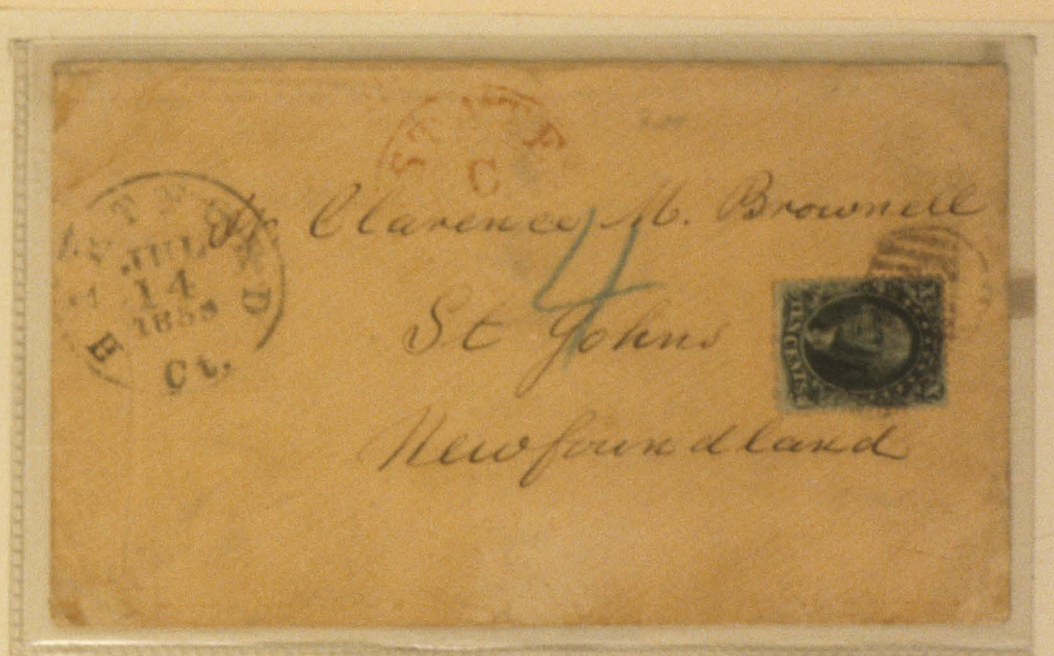 HARTFORD
JUL
14
1858
Ct.
Mr Clarence M. Brownell
4
St Johns
Newfoundland
TEN CENTS